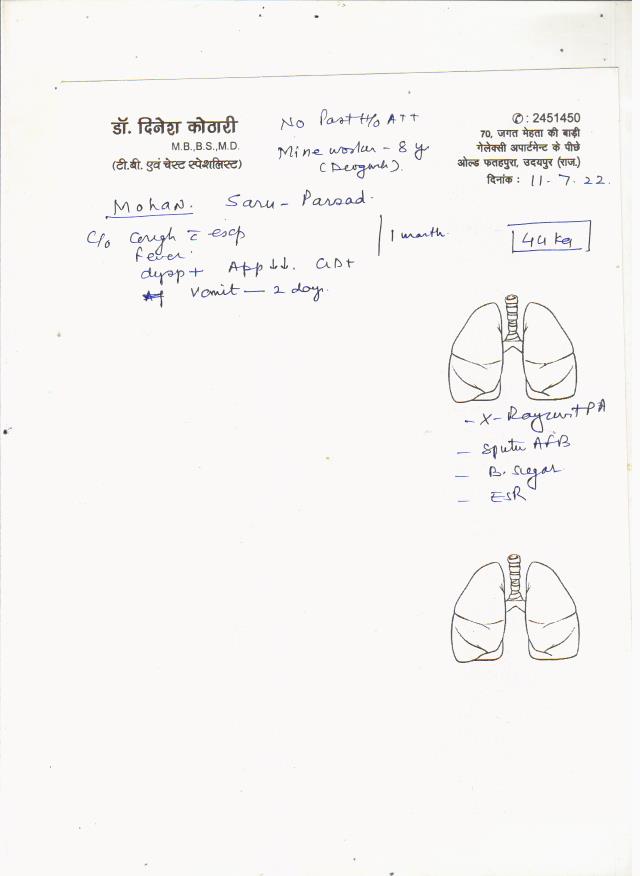 डॉ. दिनेश कोठारी
M.B.,B.S.,M.D.
(टी.बी. एवं चेस्ट स्पेशलिस्ट)
No Past H/o ATT
Mine worker - 8 y
(Deogarh).
✆: 2451450
70, जगत मेहता की बाड़ी
गेलेक्सी अपार्टमेन्ट के पीछे
ओल्ड फतहपुरा, उदयपुर (राज.)
दिनांक : 11-7-22.
Mohan. Saru - Parsad.
C/o Cough c̄ exp
Fever.
1 month.
44 kg
dysp + App ↓↓.
Vomit — 2 day.
- X-Ray chest PA
- Sputu AFB
- B. Sugar
- ESR